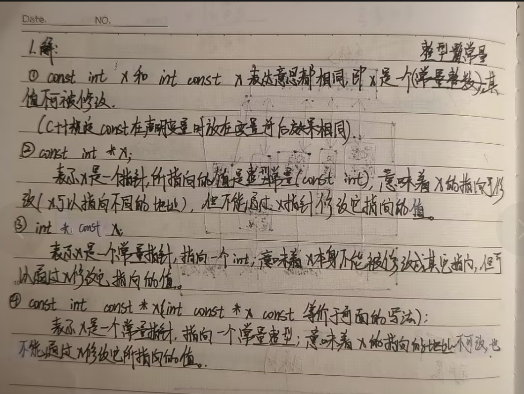 Date. NO.
1.解: 整型常量
① const int x 和 int const x 表达意思都相同,即x是一个(常量整数),其
值不可被修改.
(C++规定const在声明变量时放在变量前后效果相同).
② const int *x;
表示x是一个指针,所指向的值是整型常量(const int),意味着x的指向可修
改(x可以指向不同的地址),但不能通过x指针修改它指向的值。
③ int * const x.
表示x是一个常量指针,指向一个int,意味着x本身不能被修改成其它指向,但可
以通过x修改它指向的值。
④ const int const * x(int const * x const 等价于前面的写法):
表示x是一个常量指针,指向一个常量类型;意味着x的指向的地址不可改,也
不能通过x修改它所指向的值。